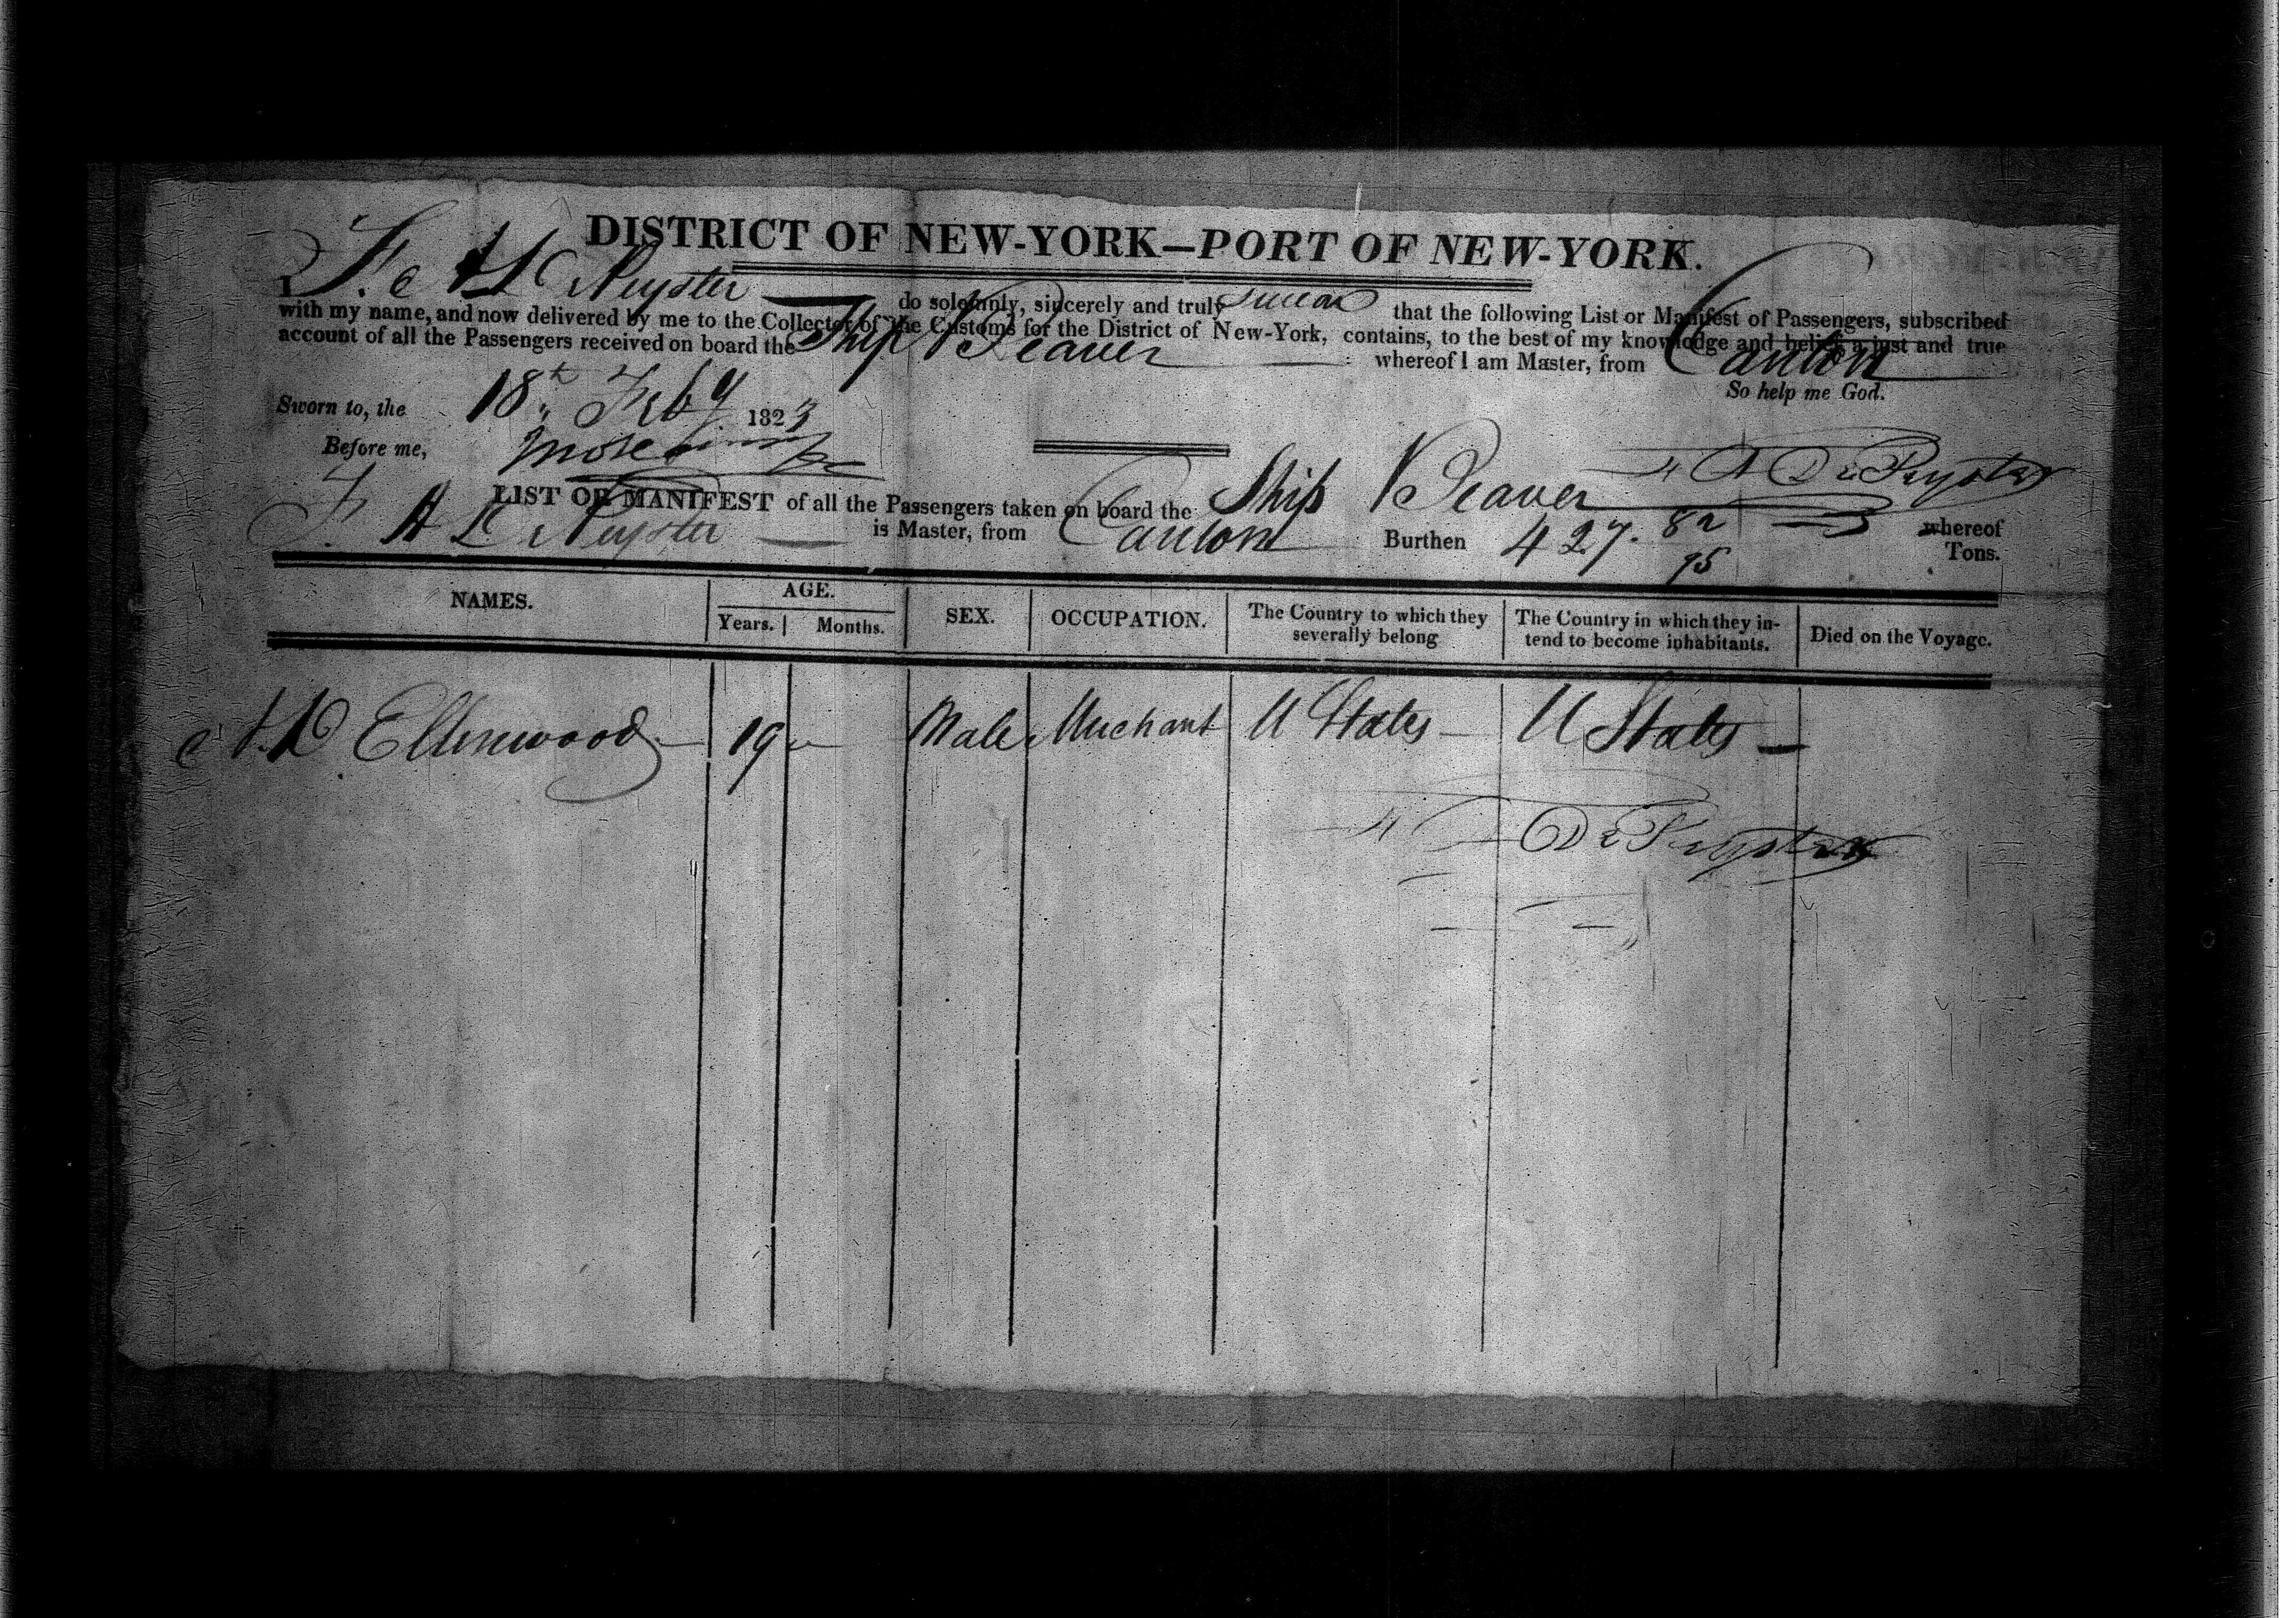 DISTRICT OF NEW-YORK—PORT OF NEW-YORK.
I, F. A De Peyster do solemnly, sincerely and truly swear that the following List or Manifest of Passengers, subscribed
with my name, and now delivered by me to the Collector of the Customs for the District of New-York, contains, to the best of my knowledge and belief, a just and true
account of all the Passengers received on board the Ship Beaver whereof I am Master, from Canton
So help me God.
Sworn to, the 18th Feby 1823
Before me,
F A De Peyster
LIST OR MANIFEST of all the Passengers taken on board the Ship Beaver whereof
F. A De Peyster is Master, from Canton Burthen 427. 82/95 Tons.
NAMES. AGE. SEX. OCCUPATION. The Country to which they severally belong The Country in which they intend to become inhabitants. Died on the Voyage.
Years. Months.
Ellenwood 19 Male Merchant U States U States
De Peyster